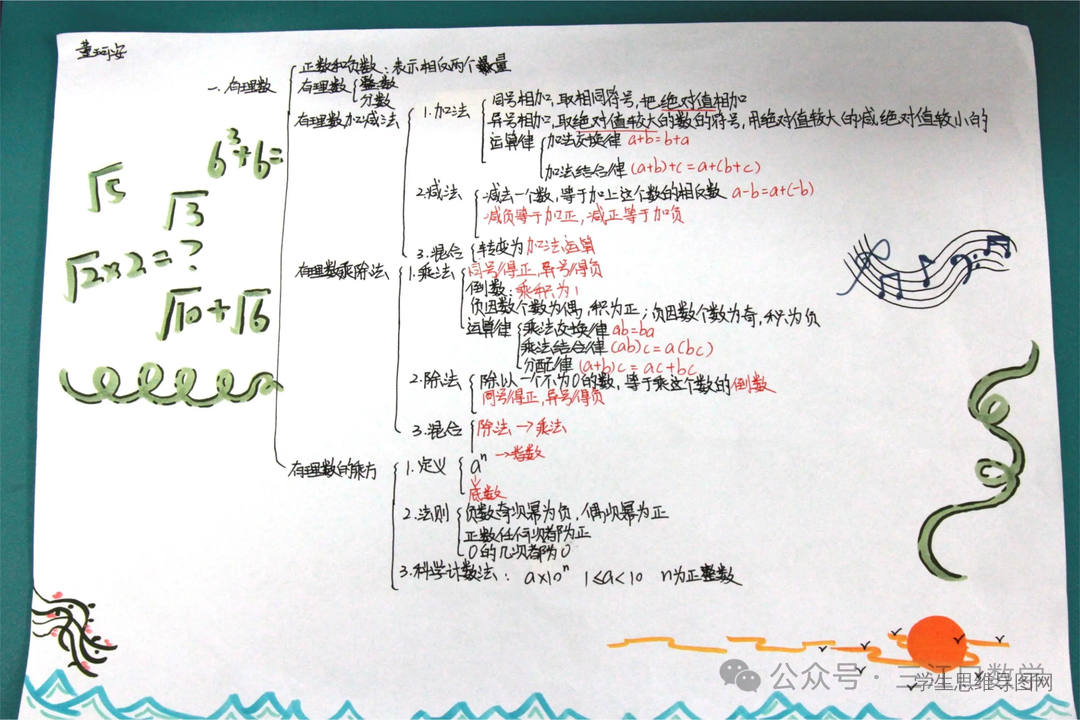 董珂安
一.有理数
正数和负数:表示相反两个数量
有理数
整数
分数
有理数加减法
1.加法
同号相加,取相同符号,把绝对值相加
异号相加,取绝对值较大的数的符号,用绝对值较大的减绝对值较小的
运算律
加法交换律 a+b=b+a
加法结合律 (a+b)+c=a+(b+c)
2.减法
减去一个数,等于加上这个数的相反数 a-b=a+(-b)
减负等于加正,减正等于加负
3.混合
转变为加法运算
有理数乘除法
1.乘法
同号得正,异号得负
倒数:乘积为1
负因数个数为偶,积为正;负因数个数为奇,积为负
运算律
乘法交换律 ab=ba
乘法结合律 (ab)c=a(bc)
分配律 (a+b)c=ac+bc
2.除法
除以一个不为0的数,等于乘这个数的倒数
同号得正,异号得负
3.混合
除法→乘法
有理数的乘方
1.定义
aⁿ →指数
↓
底数
2.法则
负数奇次幂为负,偶次幂为正
正数任何次都为正
0的几次都为0
3.科学计数法: a×10ⁿ 1≤a<10 n为正整数
6³+6=
√5
√3
√2×2=?
√10+√6
公众号·三江口数学
学生思维导图网